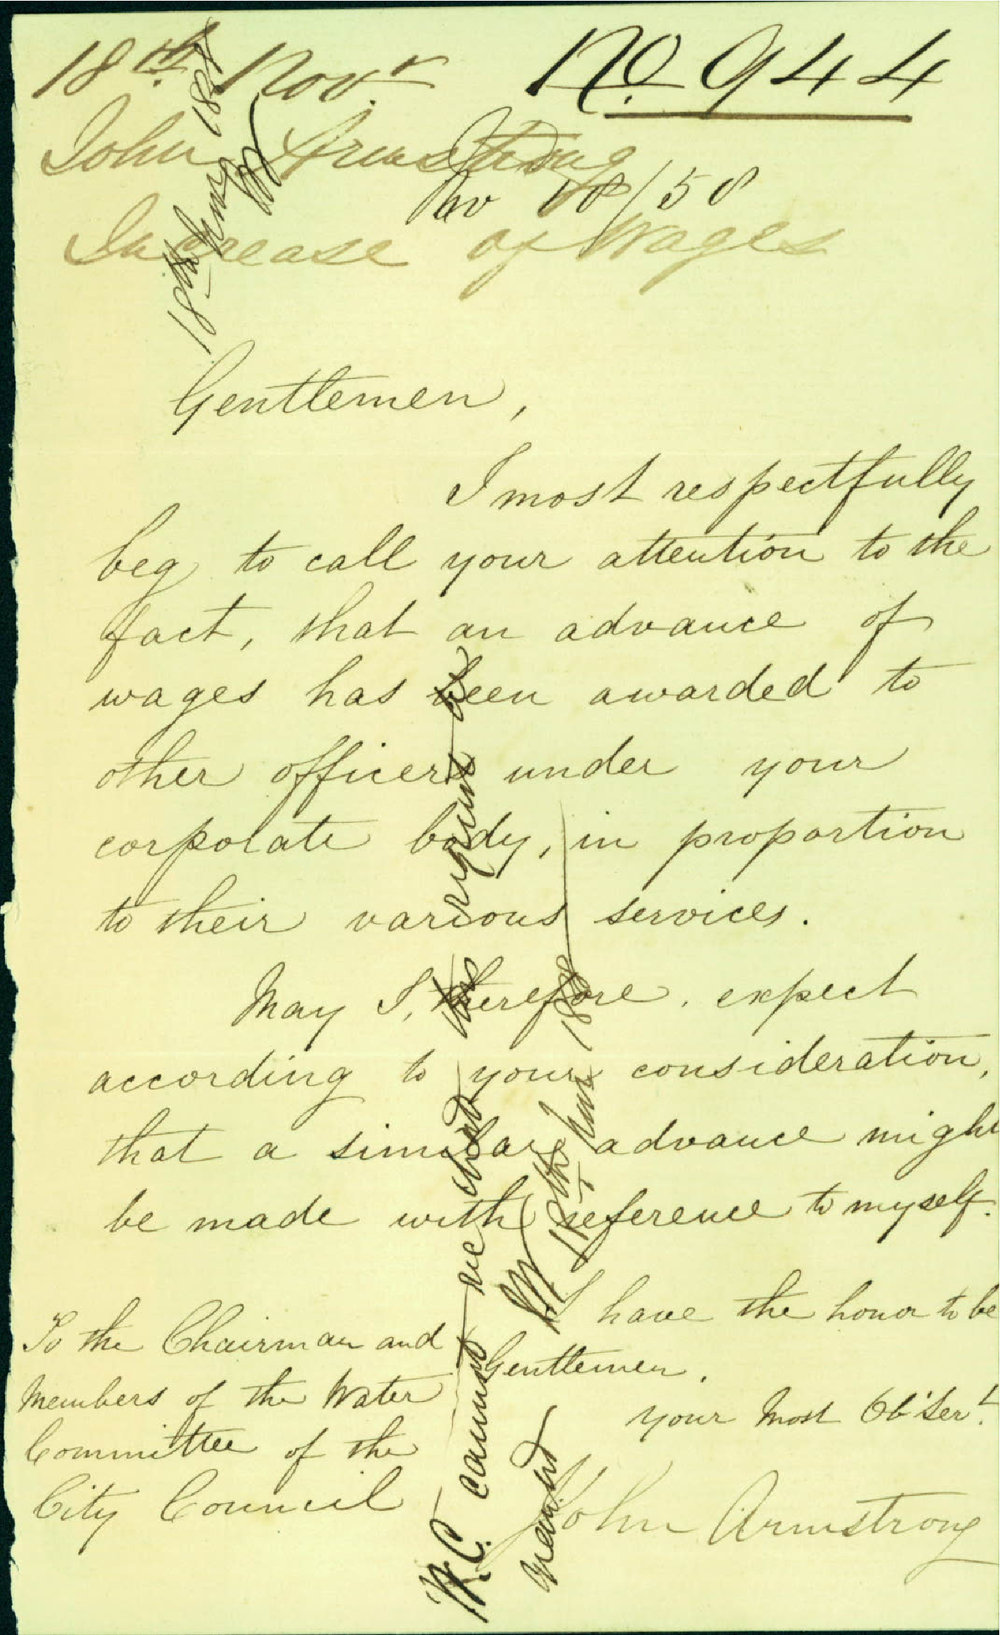 18th. Novr No. 944
John Armstrong
No 18/58
Increase of Wages
18th Novr 1858
Gentlemen,
I most respectfully
beg to call your attention to the
fact, that an advance of
wages has been awarded to
other officers under your
corporate body, in proportion
to their various services.
May I, therefore, expect
according to your consideration,
that a similar advance might
be made with reference to myself.
I have the honor to be
Gentlemen,
your Most Ob'Sert.
John Armstrong
To the Chairman and
Members of the Water
Committee of the
City Council
W.C. cannot recomd this request be
granted
18th Novr 1858